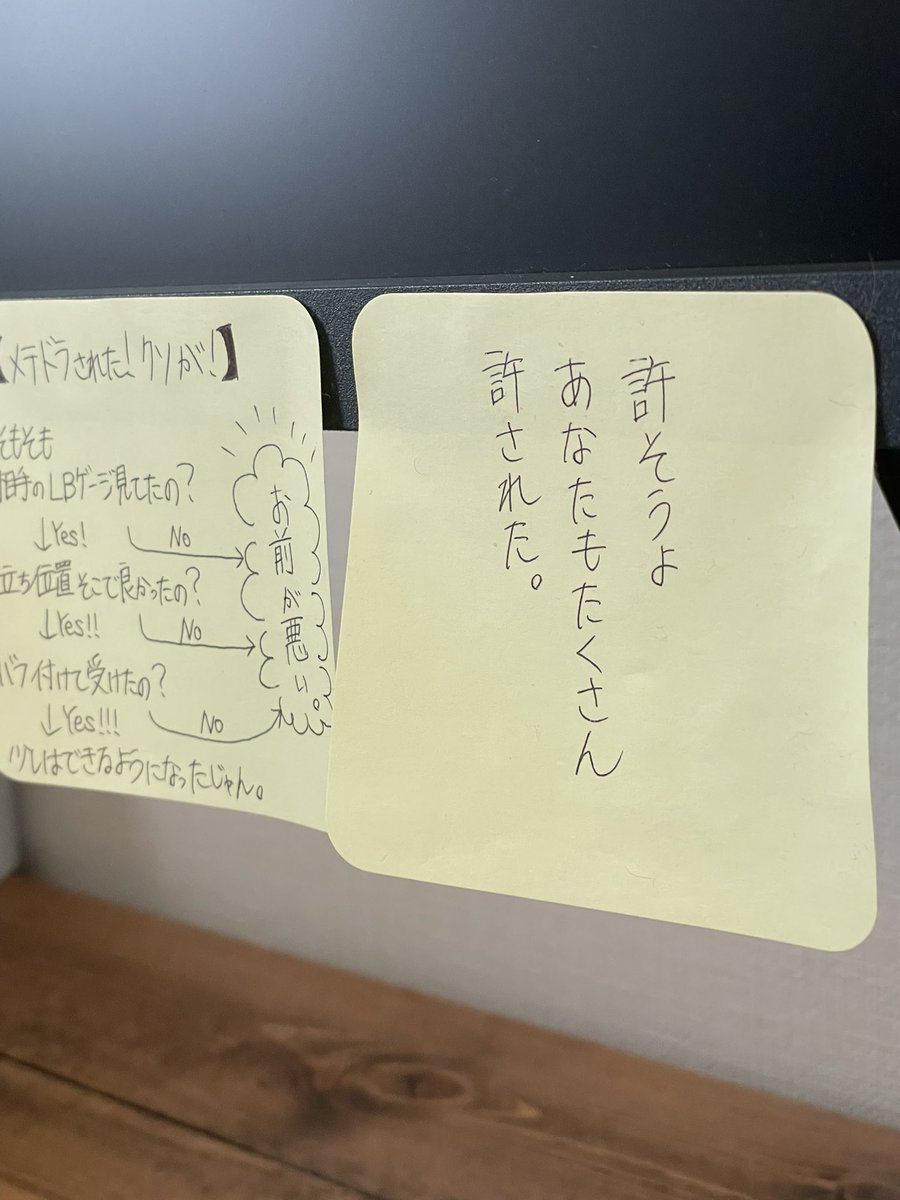 【メテドラされた！クソが！】
そもそも
相手のLBゲージ見てたの？
↓Yes!
No
立ち位置そこで良かったの？
↓Yes!!
No
バラ付けて受けたの？
↓Yes!!!
No
ツレはできるようになったじゃん。
お前が悪い。
許そうよ
あなたもたくさん
許された。